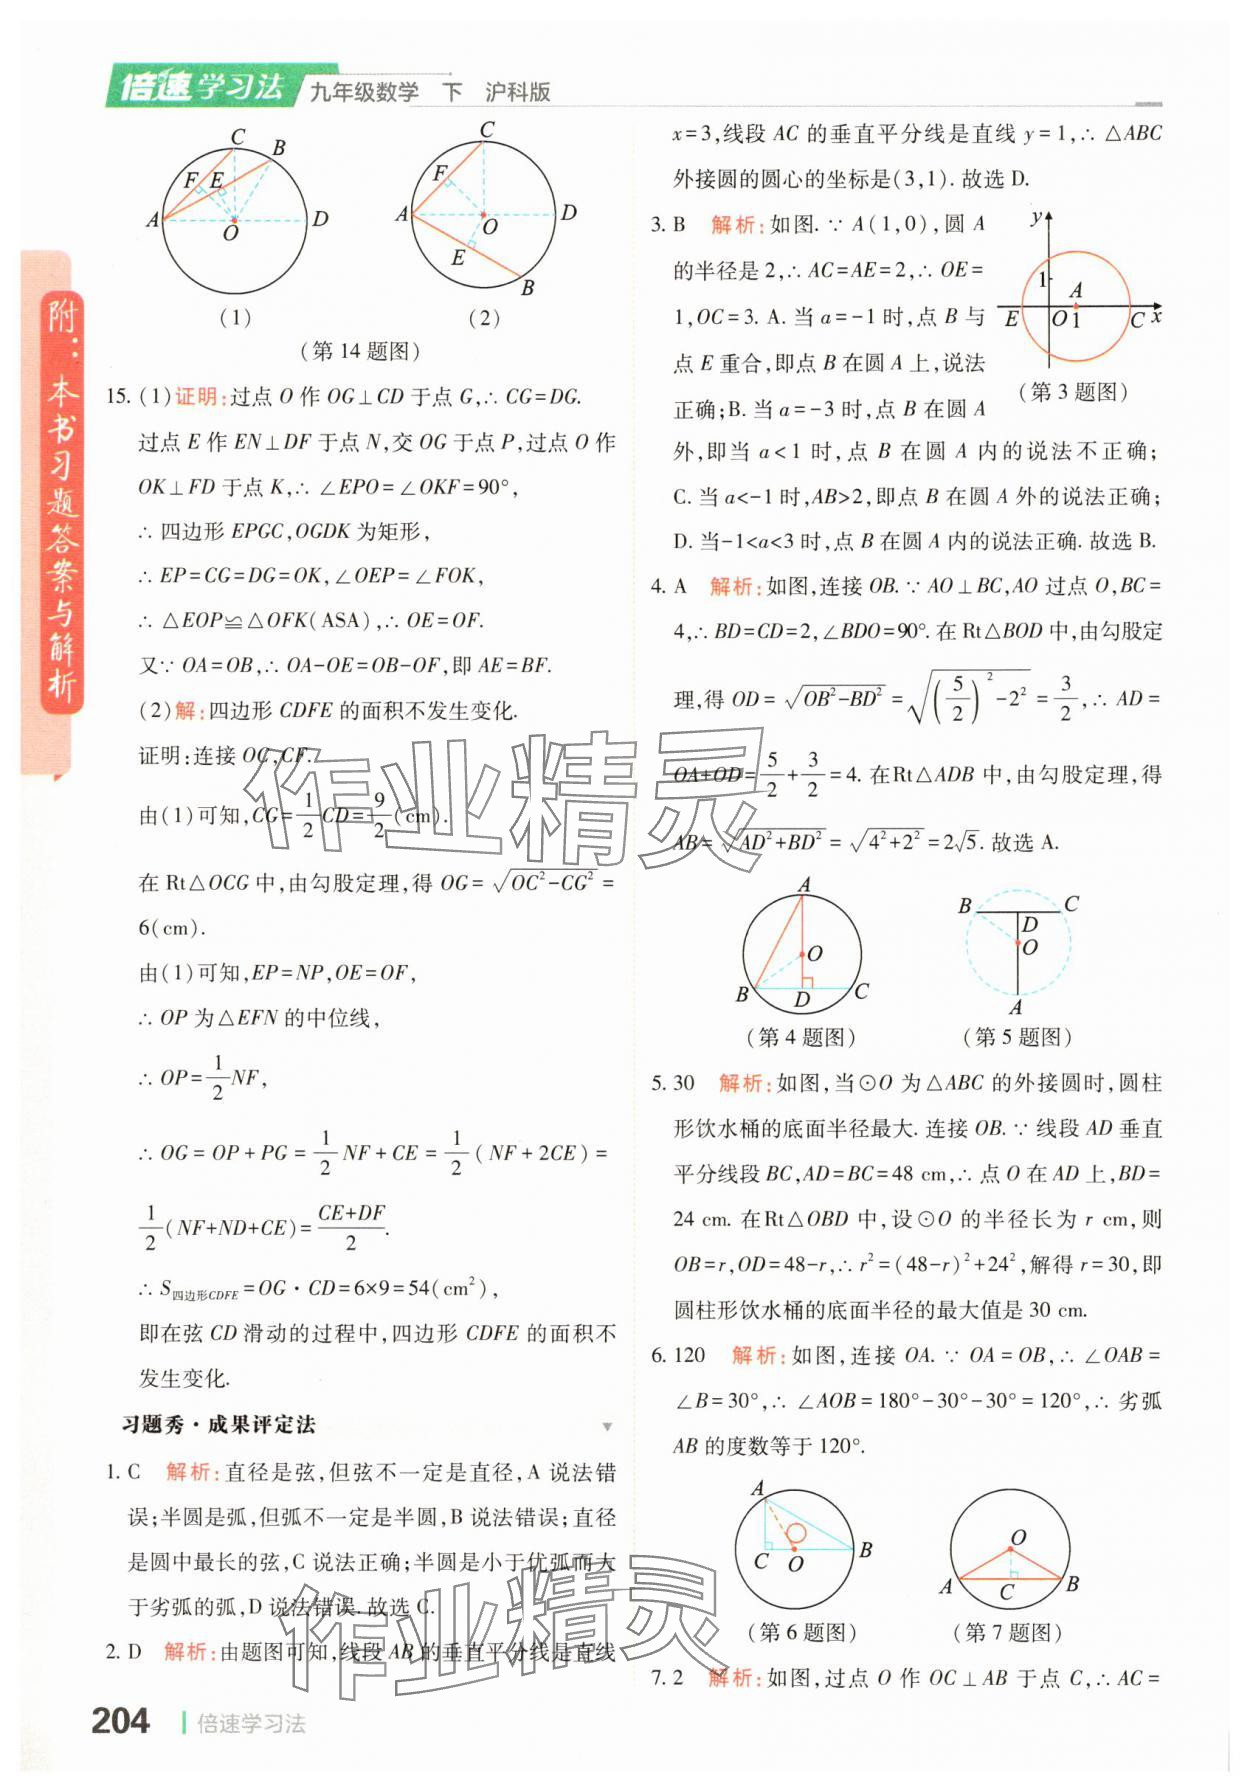 倍速学习法 九年级数学 下 沪科版
附:本书习题答案与解析
C B F E A O D
(1)
C F A O D E B
(2)
(第14题图)
15. (1)证明:过点 O 作 OG⊥CD 于点 G,∴ CG=DG.
过点 E 作 EN⊥DF 于点 N,交 OG 于点 P,过点 O 作
OK⊥FD 于点 K,∴ ∠EPO=∠OKF=90°,
∴ 四边形 EPGC,OGDK 为矩形,
∴ EP=CG=DG=OK,∠OEP=∠FOK,
∴ △EOP≌△OFK(ASA),∴ OE=OF.
又∵ OA=OB,∴ OA-OE=OB-OF,即 AE=BF.
(2)解:四边形 CDFE 的面积不发生变化.
证明:连接 OC,CF.
由(1)可知,CG=1/2 CD=9/2(cm).
在 Rt△OCG 中,由勾股定理,得 OG=√(OC²-CG²)=
6(cm).
由(1)可知,EP=NP,OE=OF,
∴ OP 为△EFN 的中位线,
∴ OP=1/2 NF,
∴ OG=OP+PG=1/2 NF+CE=1/2(NF+2CE)=
1/2(NF+ND+CE)=(CE+DF)/2.
∴ S四边形CDFE=OG·CD=6×9=54(cm²),
即在弦 CD 滑动的过程中,四边形 CDFE 的面积不
发生变化.
习题秀·成果评定法
1. C 解析:直径是弦,但弦不一定是直径,A 说法错
误;半圆是弧,但弧不一定是半圆,B 说法错误;直径
是圆中最长的弦,C 说法正确;半圆是小于优弧而大
于劣弧的弧,D 说法错误.故选 C.
2. D 解析:由题图可知,线段 AB 的垂直平分线是直线
x=3,线段 AC 的垂直平分线是直线 y=1,∴ △ABC
外接圆的圆心的坐标是(3,1).故选 D.
3. B 解析:如图.∵ A(1,0),圆 A
的半径是 2,∴ AC=AE=2,∴ OE=
1,OC=3. A. 当 a=-1 时,点 B 与
点 E 重合,即点 B 在圆 A 上,说法
正确;B. 当 a=-3 时,点 B 在圆 A
y 1 A E O 1 C x
(第 3 题图)
外,即当 a<1 时,点 B 在圆 A 内的说法不正确;
C. 当 a<-1 时,AB>2,即点 B 在圆 A 外的说法正确;
D. 当-1<a<3 时,点 B 在圆 A 内的说法正确.故选 B.
4. A 解析:如图,连接 OB.∵ AO⊥BC,AO 过点 O,BC=
4,∴ BD=CD=2,∠BDO=90°.在 Rt△BOD 中,由勾股定
理,得 OD=√(OB²-BD²)=√((5/2)²-2²)=3/2,∴ AD=
OA+OD=5/2+3/2=4. 在Rt△ADB 中,由勾股定理,得
AB=√(AD²+BD²)=√(4²+2²)=2√5.故选 A.
A O B D C
(第 4 题图)
B C D O A
(第 5 题图)
5. 30 解析:如图,当⊙O 为△ABC 的外接圆时,圆柱
形饮水桶的底面半径最大.连接 OB.∵ 线段 AD 垂直
平分线段 BC,AD=BC=48 cm,∴ 点 O 在 AD 上,BD=
24 cm. 在Rt△OBD 中,设⊙O 的半径长为 r cm,则
OB=r,OD=48-r,∴ r²=(48-r)²+24²,解得 r=30,即
圆柱形饮水桶的底面半径的最大值是 30 cm.
6. 120 解析:如图,连接 OA.∵ OA=OB,∴ ∠OAB=
∠B=30°,∴ ∠AOB=180°-30°-30°=120°,∴ 劣弧
AB 的度数等于 120°.
A C O B
(第 6 题图)
O A C B
(第 7 题图)
7. 2 解析:如图,过点 O 作 OC⊥AB 于点 C,∴ AC=
作业精灵
作业精灵
204 倍速学习法